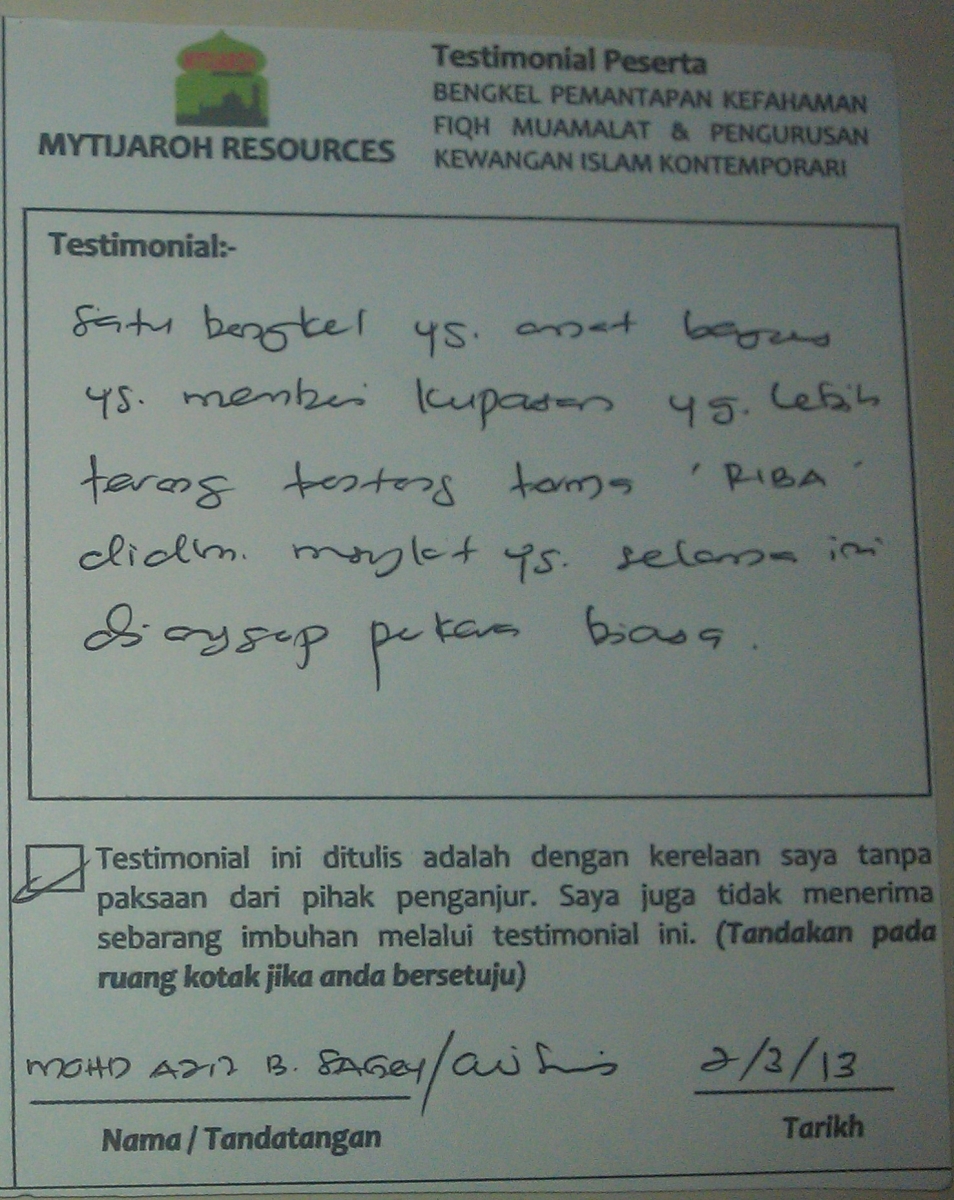 MYTIJAROH
MYTIJAROH RESOURCES
Testimonial Peserta
BENGKEL PEMANTAPAN KEFAHAMAN
FIQH MUAMALAT & PENGURUSAN
KEWANGAN ISLAM KONTEMPORARI
Testimonial:-
Satu bengkel yg. amat bagus
yg. memberi kupasan yg. lebih
terang tentang tema 'RIBA'
didlm. msykt yg. selama ini
dianggap perkara biasa.
Testimonial ini ditulis adalah dengan kerelaan saya tanpa
paksaan dari pihak penganjur. Saya juga tidak menerima
sebarang imbuhan melalui testimonial ini. (Tandakan pada
ruang kotak jika anda bersetuju)
MOHD AZIZ B. /
2/3/13
Nama / Tandatangan
Tarikh